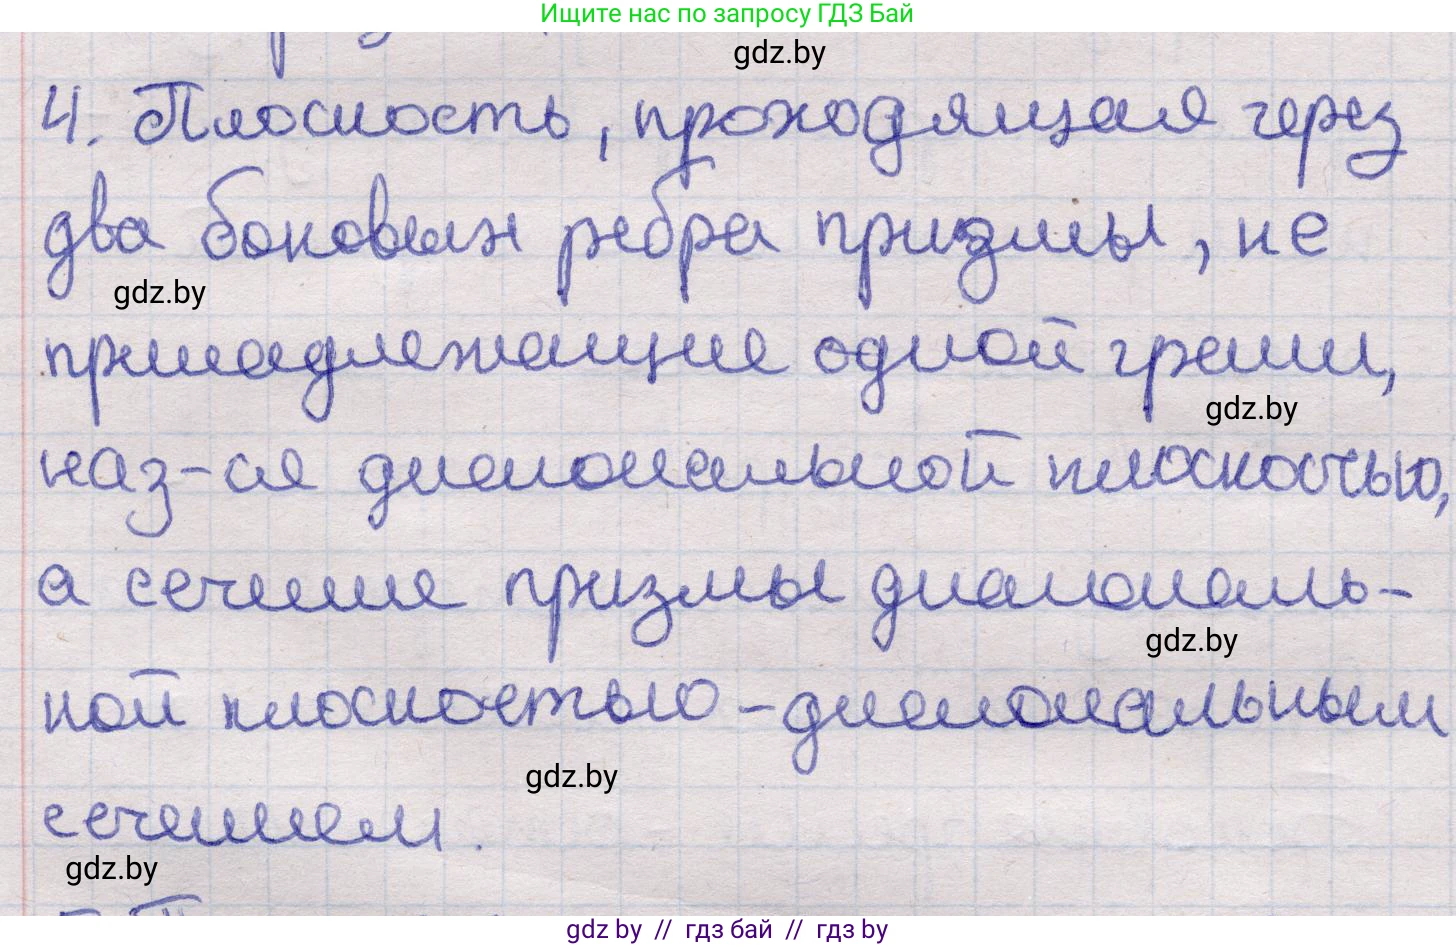 Ищите нас по запросу ГДЗ Бай
gdz.by
4. Плоскость, проходящая через
два боковых ребра призмы, не
gdz.by
принадлежащие одной грани,
gdz.by
наз-ся диагональной плоскостью,
а сечение призмы диагональ-
gdz.by
ной плоскостью - диагональным
gdz.by
сечением.
gdz.by
gdz by // гдз бай // гдз by